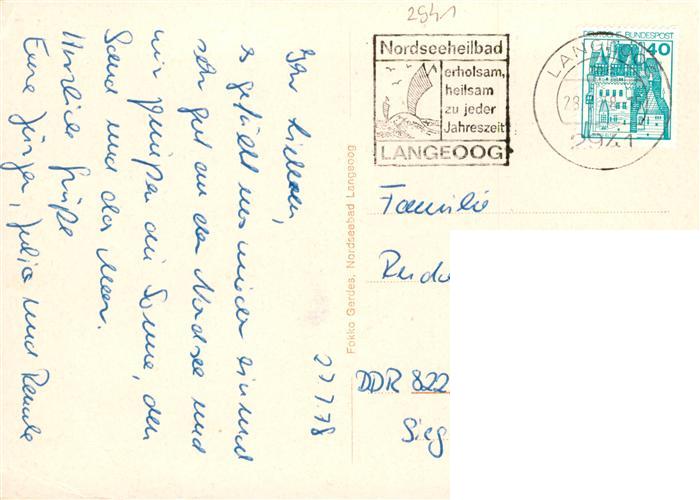 2941
Nordseeheilbad
erholsam,
heilsam
zu jeder
Jahreszeit
LANGEOOG
DEUTSCHE BUNDESPOST
40
2941
Familie
DDR 822
Fokko Gerdes, Nordseebad Langeoog
27.7.78
Ihr Lieben,
es gefällt uns wieder einmal
sehr gut an der Nordsee und
wir genießen die Sonne, den
Sand und das Meer.
Herzliche Grüße
Eure Jürgen, Julia und Renate